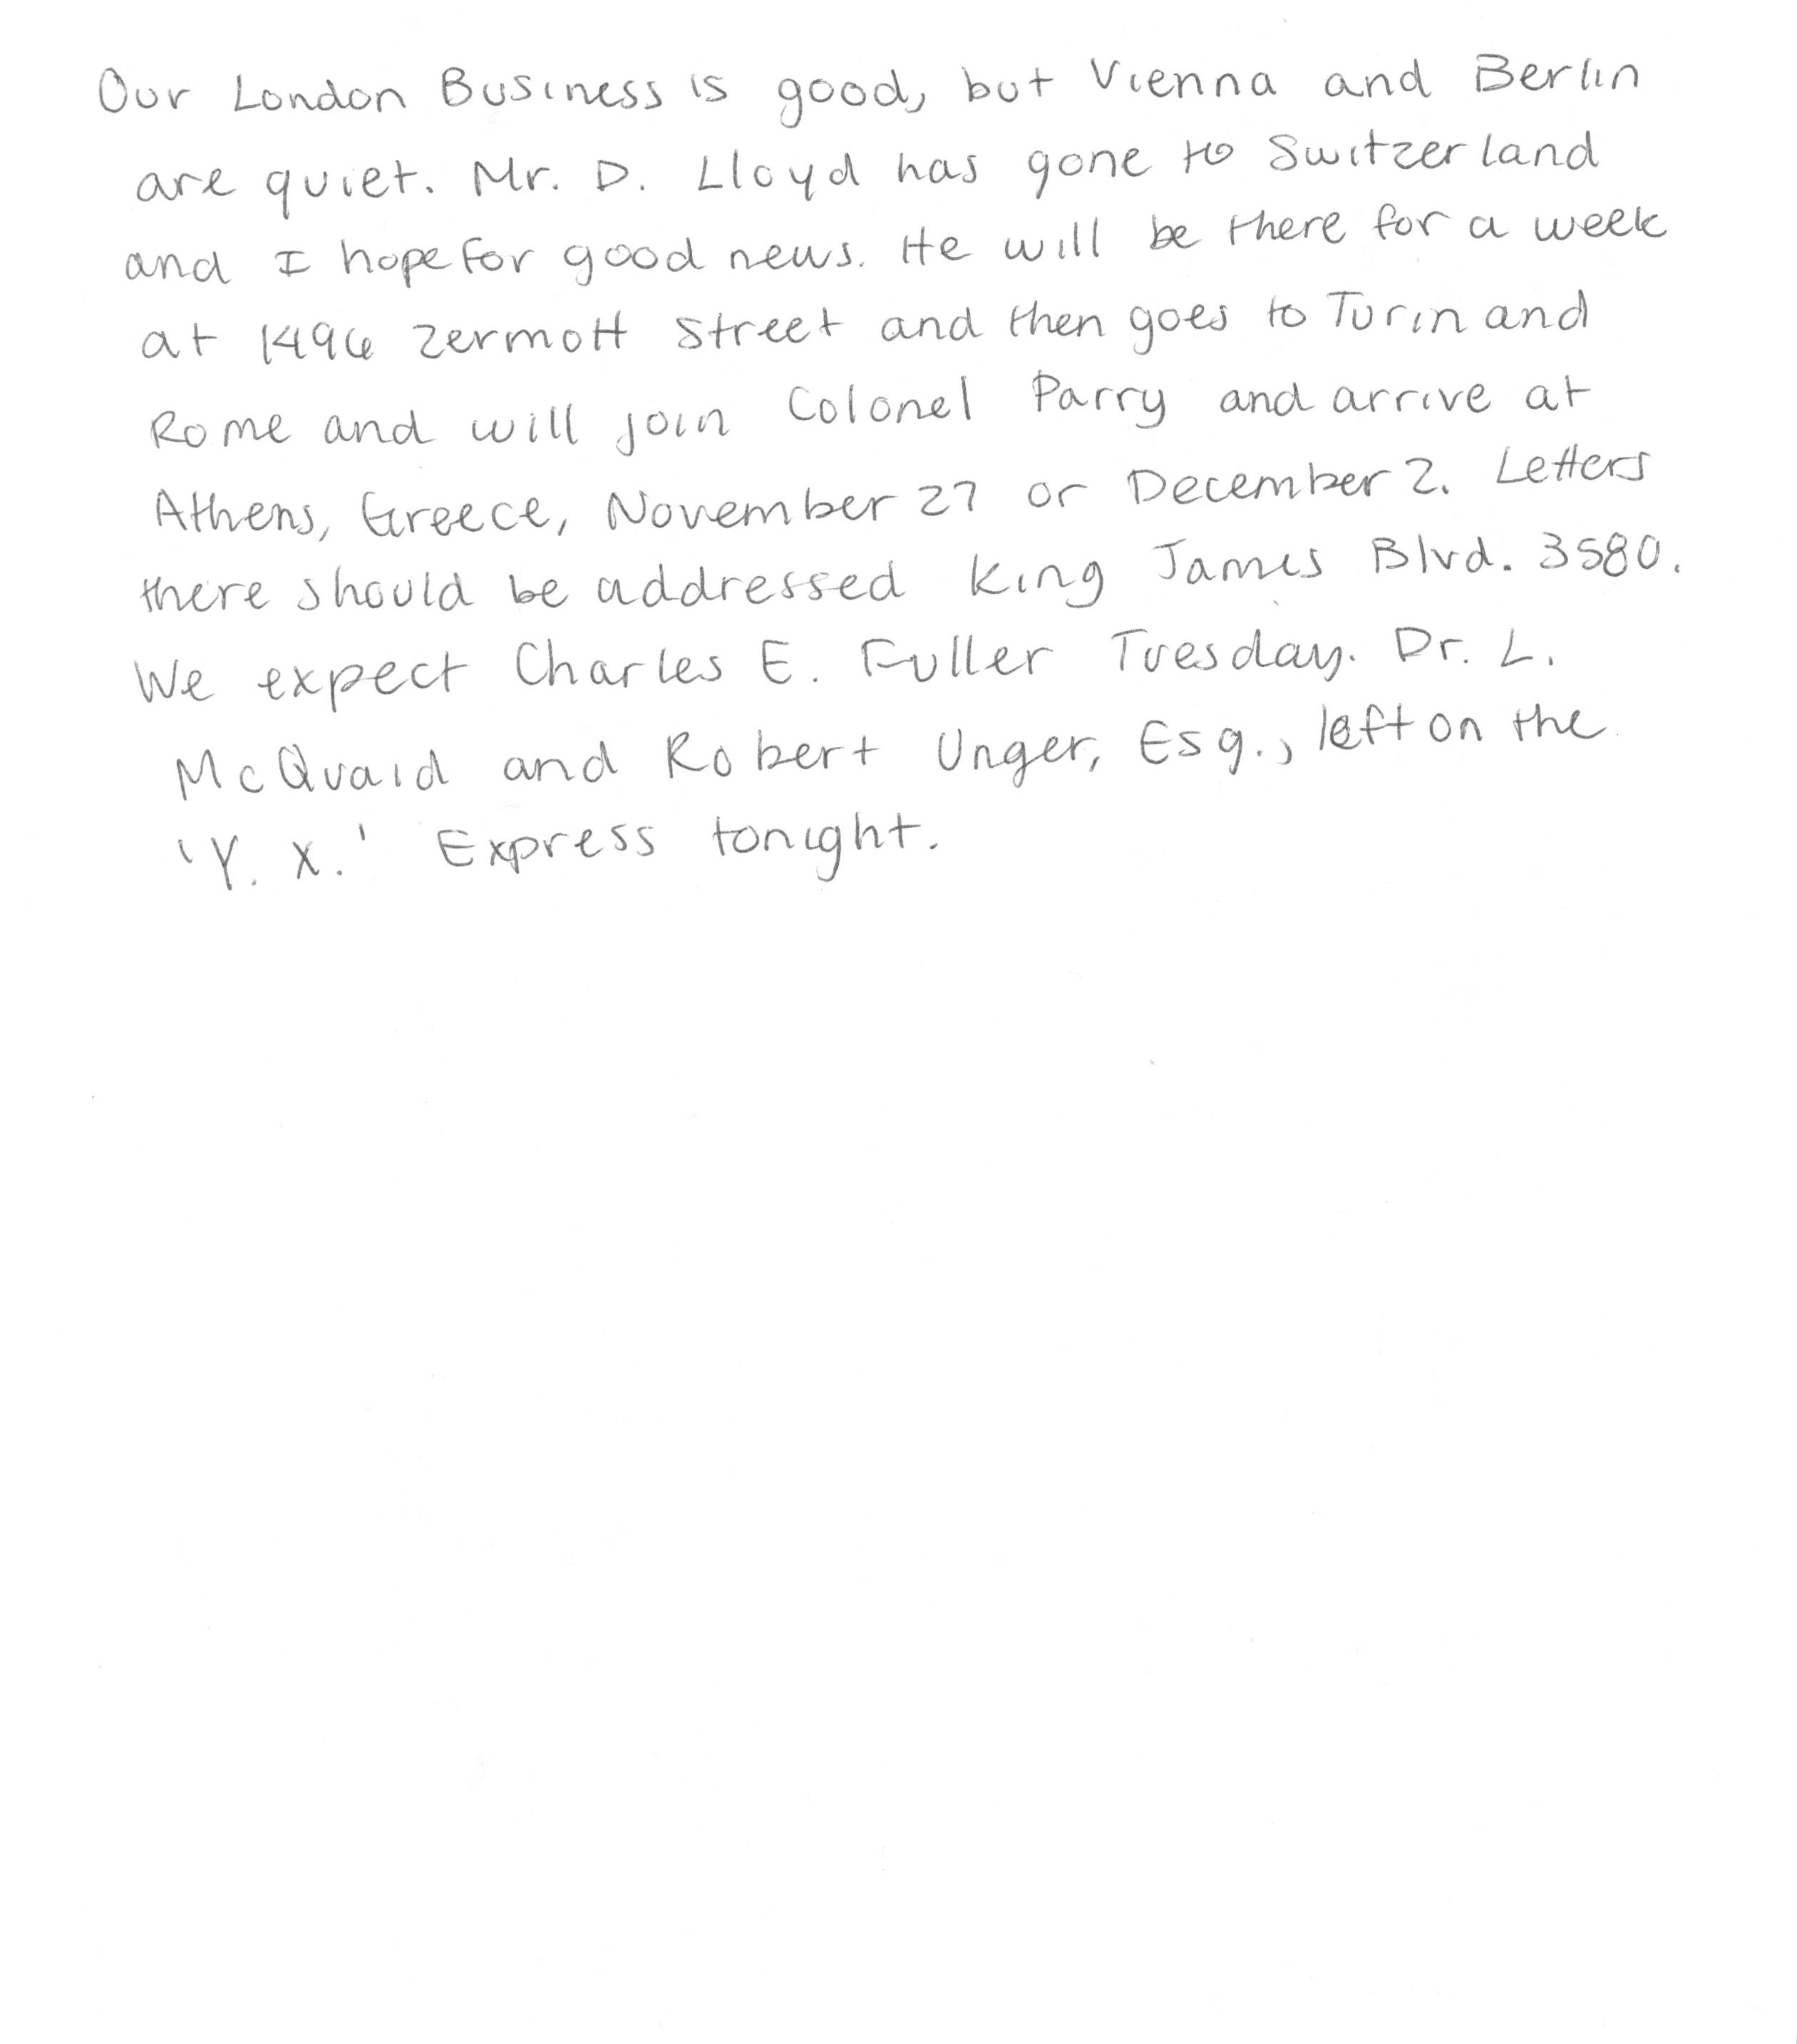 Our London Business is good, but Vienna and Berlin
are quiet. Mr. D. Lloyd has gone to Switzerland
and I hope for good news. He will be there for a week
at 1496 Zermott Street and then goes to Turin and
Rome and will join Colonel Parry and arrive at
Athens, Greece, November 27 or December 2. Letters
there should be addressed King James Blvd. 3580.
We expect Charles E. Fuller Tuesday. Dr. L.
McQuaid and Robert Unger, Esq., left on the
'Y. X.' Express tonight.